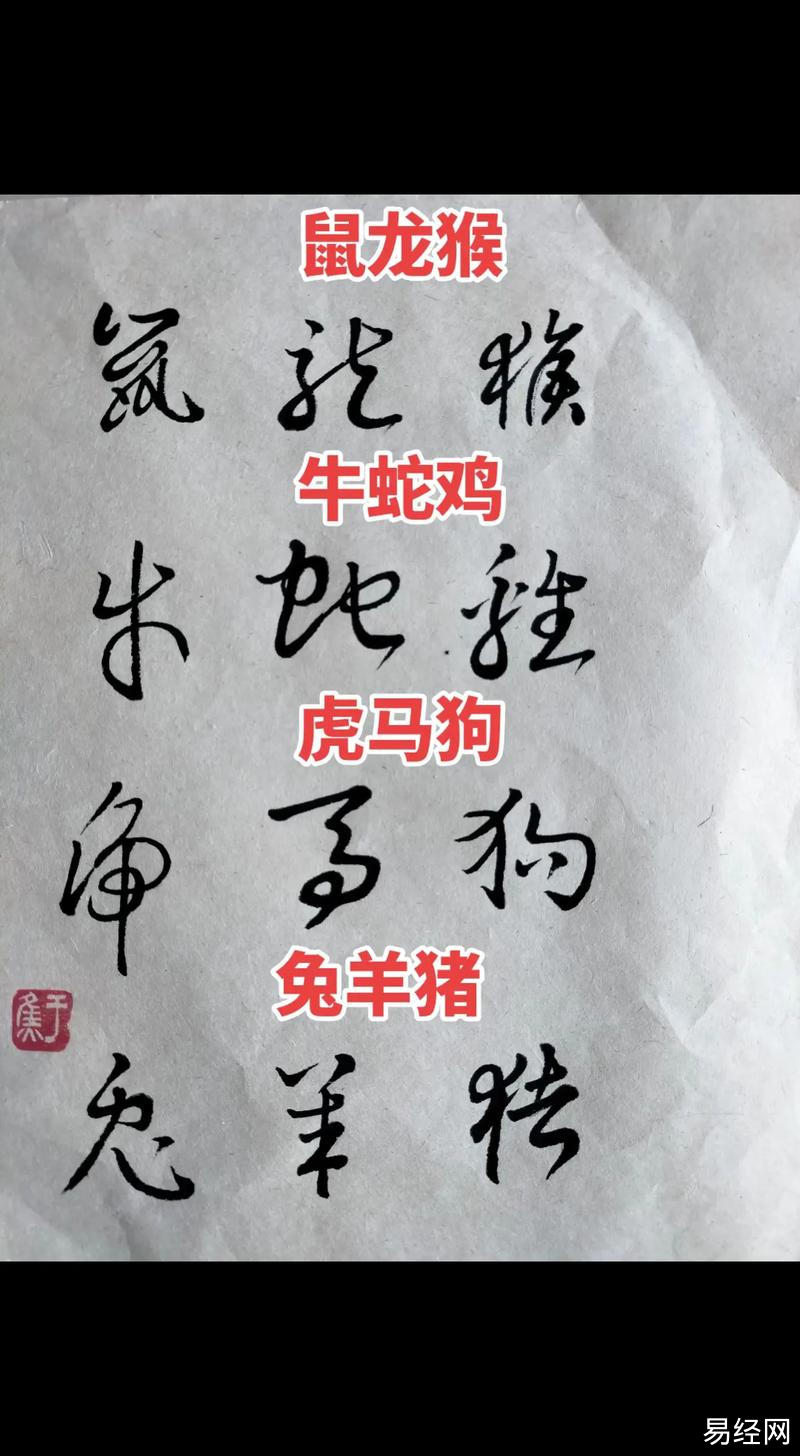 鼠龙猴
鼠龍猴
牛蛇鸡
牛蛇雞
虎马狗
虎馬狗
兔羊猪
兔羊猪
易经网